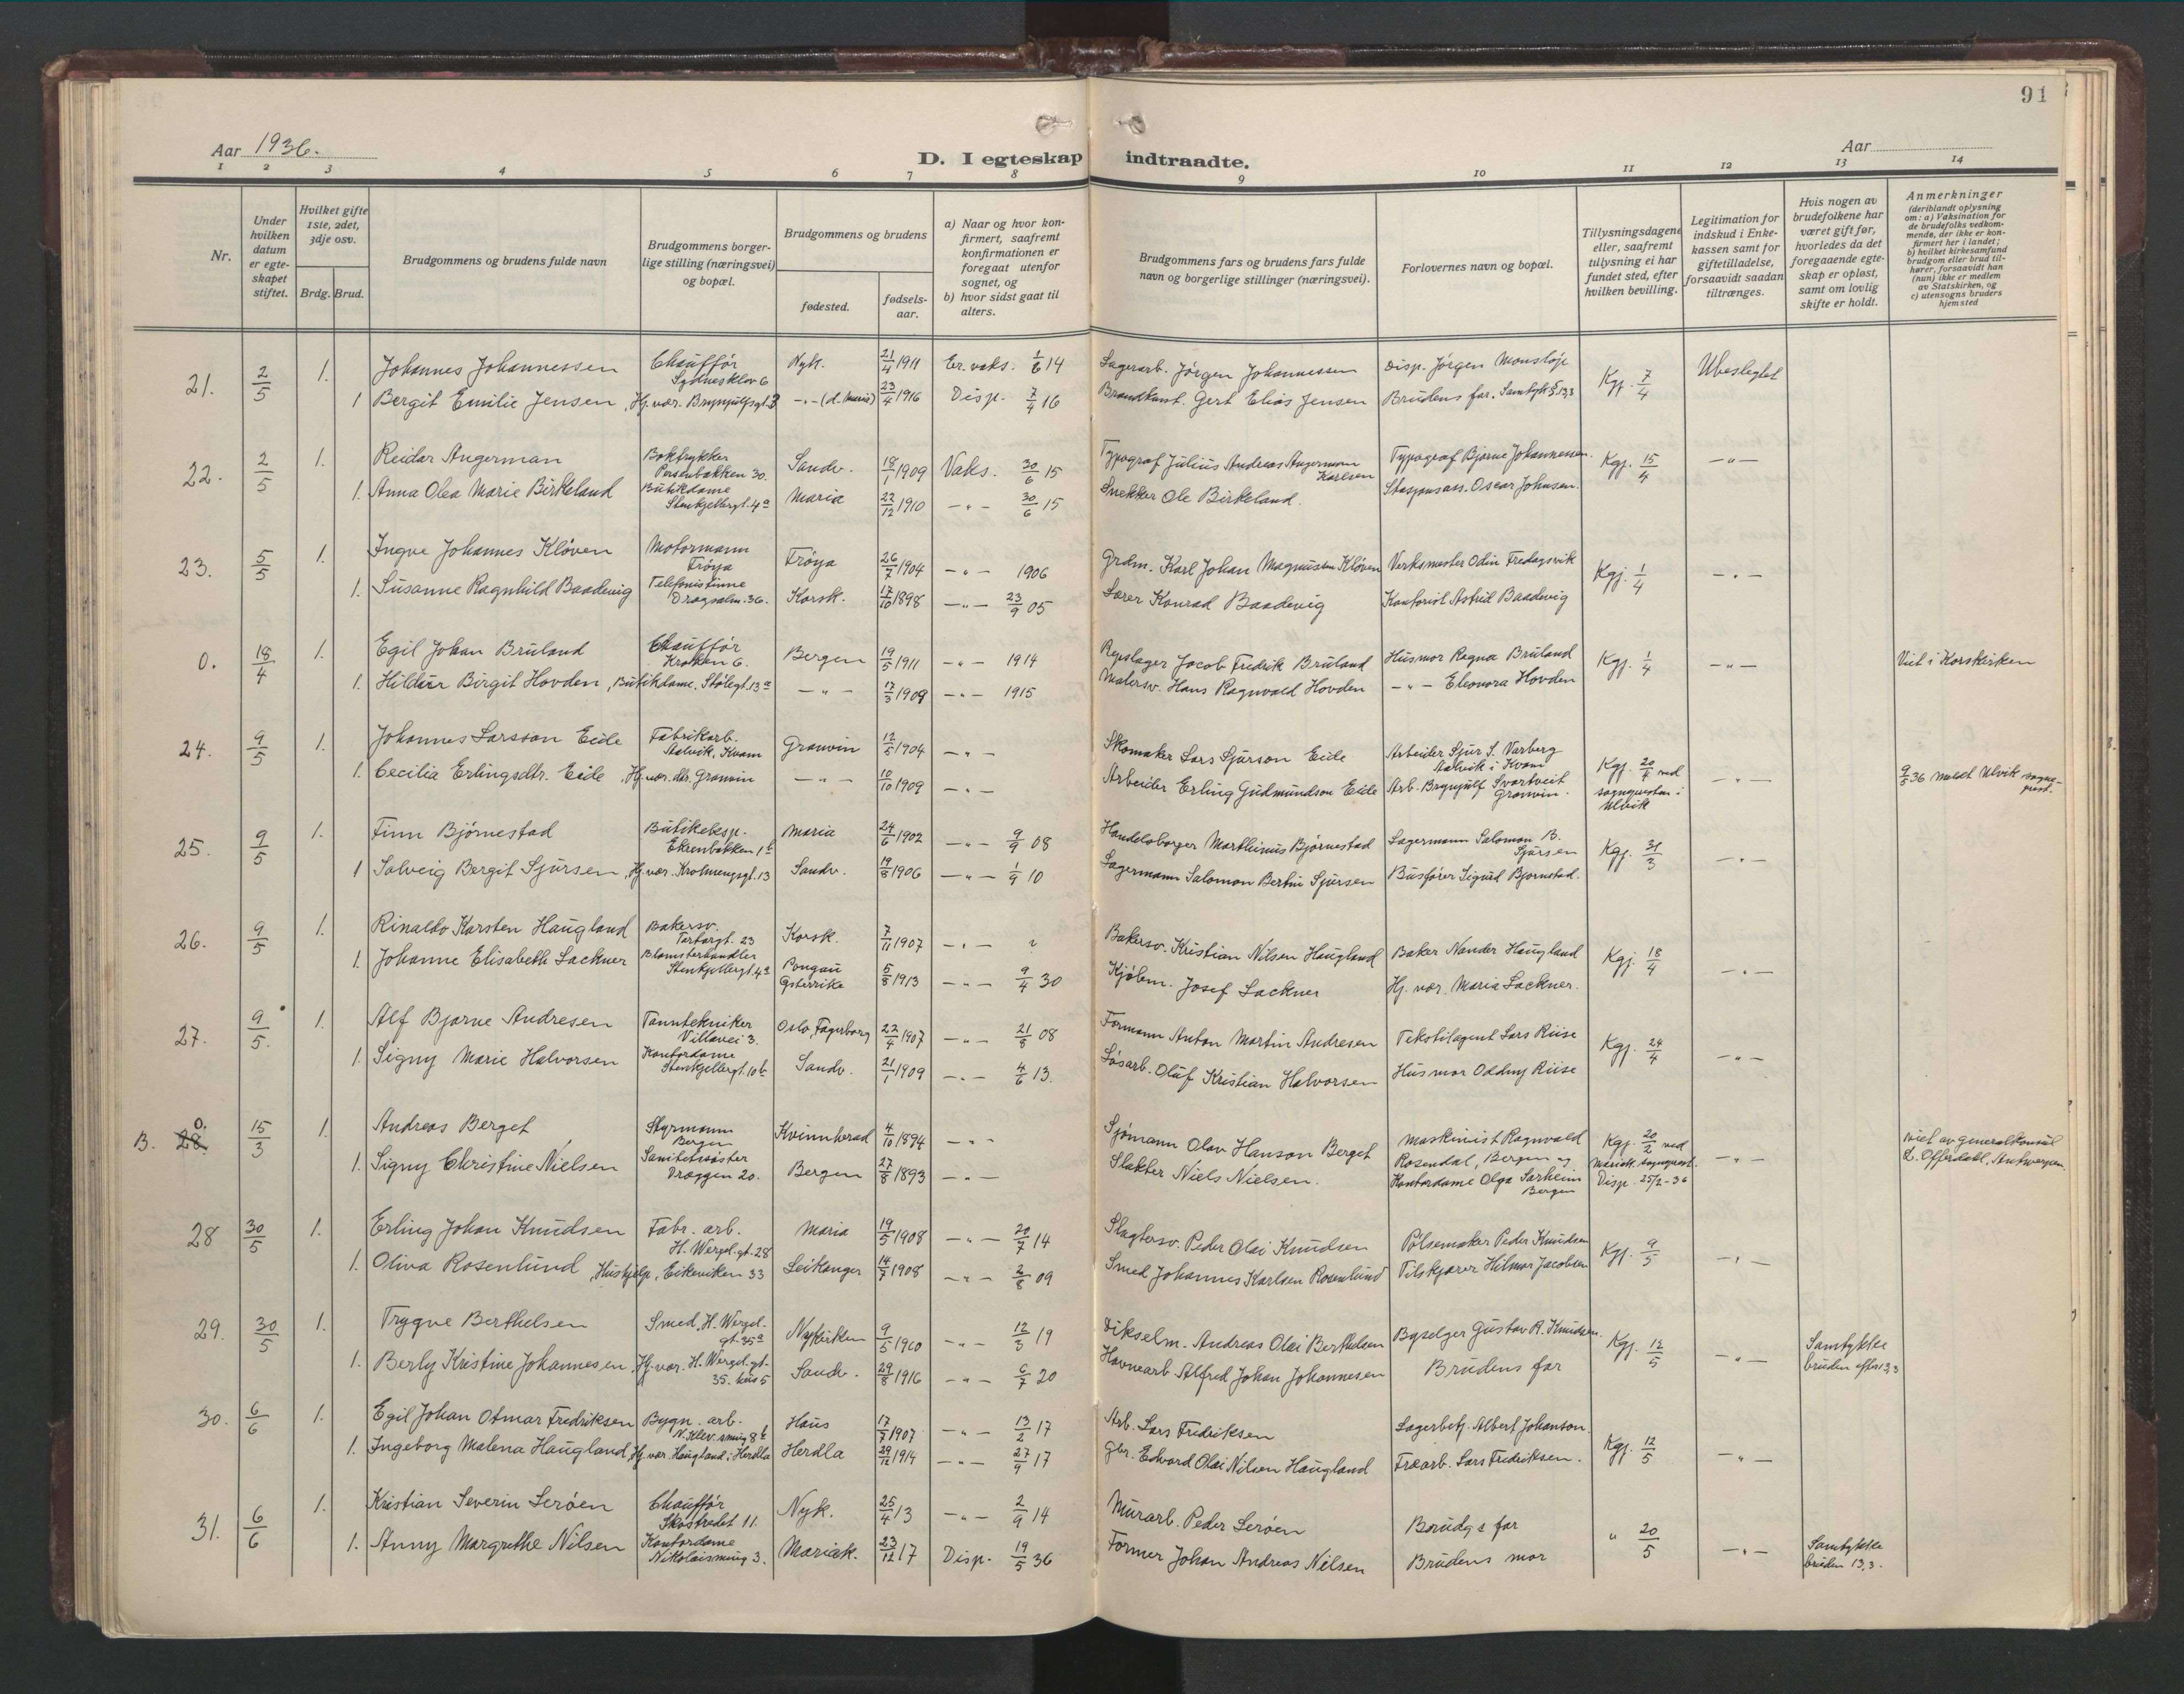 91
Aar 1936.
D. I egteskap indtraadte.
Aar
1 2 3 4 5 6 7 8 9 10 11 12 13 14
Nr.
Under hvilken datum er egteskapet stiftet.
Hvilket gifte 1ste, 2det, 3dje osv.
Brdg. Brud.
Brudgommens og brudens fulde navn
Brudgommens borgerlige stilling (næringsvei) og bopæl.
Brudgommens og brudens
fødested.
fødselsaar.
a) Naar og hvor konfirmert, saafremt konfirmationen er foregaat utenfor sognet, og
b) hvor sidst gaat til alters.
Brudgommens fars og brudens fars fulde navn og borgerlige stillinger (næringsvei).
Forlovernes navn og bopæl.
Tillysningsdagene eller, saafremt tillysning ei har fundet sted, efter hvilken bevilling.
Legitimation for indskud i Enkekassen samt for giftetilladelse, forsaavidt saadan tiltrænges.
Hvis nogen av brudefolkene har været gift før, hvorledes da det foregaaende egteskap er opløst, samt om lovlig skifte er holdt.
Anmerkninger
(deriblandt oplysning om: a) Vaksination for de brudefolks vedkommende, der ikke er konfirmert her i landet; b) hvilket kirkesamfund brudgom eller brud tilhører, forsaavidt han (hun) ikke er medlem av Statskirken, og c) utensogns bruders hjemsted
21. 2/5 1. Johannes Johannessen Chauffør Sydnesklev 6 Nyk. 21/4 1911 Er. vaks. 1/6 14 Lagerarb. Jørgen Johannessen Disp. Jörgen Monsløje Kgj. 7/4 Ubeslegtet
1 Bergit Emilie Jensen, Hj. vær. Brynjulfsgt. 3 -"- (d. Maria) 23/4 1916 Disp. 7/4 16 Brandkonst. Gert Elias Jensen Brudens far. Samtyk § 13,3
22. 2/5 1. Reidar Angerman Boktrykker Persenbakken 30. Sandv. 18/1 1909 Vaks. 30/6 15 Typograf Julius Andreas Angermann Karlsen Typograf Bjarne Johannessen. Kgj. 15/4 -"-
1. Anna Olea Marie Birkeland Butikdame Stenkjellergt. 4a Maria 22/12 1910 -"- 30/6 15 Snekker Ole Birkeland. Oscar Johnsen.
23. 5/5 1. Ingve Johannes Kløven Motormann Frøya Frøya 26/7 1904 -"- 1906 Grdm. Karl Johan Magnussen Kløven Verksmester Odin Fredagsvik Kgj. 1/4 -"-
1. Susanne Ragnhild Baadevig Telefonistinne Dragsalm. 36. Korsk. 17/10 1898 -"- 23/9 05 Lærer Konrad Baadevig Kontorist Astrid Baadevig
0. 18/4 1. Egil Johan Bruland Chauffør Krohken 6. Bergen 19/5 1911 -"- 1914 Repslager Jacob Fredrik Bruland Husmor Ragna Bruland Kgj. 1/4 -"- Viet i Korskirken
1. Hildur Birgit Hovden, Butikdame, Stølegt. 13a -"- 17/3 1909 -"- 1915 Malersv. Hans Ragnvald Hovden -"- Eleonora Hovden
24. 9/5 1. Johannes Larsson Eide Fabrikarb. Aalvik, Kvam Granvin 12/5 1904 -"- Skomaker Lars Sjurson Eide Arbeider Sjur S. Varberg Aalvik i Kvam Kgj. 20/4 ved sogneprsten i Ulvik -"- 9/5 36 meldt Ulvik sogneprst.
1. Cecilia Erlingsdtr. Eide, Hj. vær. dtr. Granvin -"- 10/10 1909 -"- Arbeider Erling Gudmundson Eide Arb. Brynjulf Svartveit Granvin.
25. 9/5 1. Finn Bjørnestad Butikbesp. Ekrenbakken 1b Maria 24/6 1902 -"- 9/9 08 Handelsborger Marthinus Bjørnestad Lagermann Salomon B. Sjursen Kgj. 31/3 -"-
1 Solveig Bergit Sjursen, Hj. vær. Krohnengsgt. 13 Sandv. 19/8 1906 -"- 1/9 10 Lagermann Salomon Bertin Sjursen Busfører Sigurd Bjornstad.
26. 9/5 1. Rinaldo Karsten Haugland Bakersv. Tartargt. 23 Korsk. 7/11 1907 -"- ? Bakersv. Kristian Nilsen Haugland Baker Nander Haugland Kgj. 18/4 -"-
1. Johanne Elisabeth Lackner Blomsterhandler Stenkjellergt. 4a Pongau Østerrike 5/8 1913 -"- 9/4 30 Kjøbm. Josef Lackner Hj. vær. Maria Lackner.
27. 9/5. 1. Alf Bjarne Andresen Tanntekniker Villavei 3. Oslo, Fagerborg 22/4 1907 -"- 21/8 08 Formann Anton Martin Andresen Tekstilagent Lars Riise Kgj. 24/4 -"-
1. Signy Marie Halvorsen Kontordame Stenkjellergt. 10b Sandv. 21/1 1909 -"- 4/6 13. Løsarb. Oluf Kristian Halvorsen Husmor Oddny Riise
B. 28. 0. 15/3 1. Andreas Berget Styrmann Bergen Kvinnherad 4/10 1894 -"- Sjømann Olav Hanson Berget Maskinist Ragnvald Rosendal, Bergen og Kgj. 20/2 ved Mariak. sogneprst. Disp. 25/2-36 -"- Viet av generalkonsul L. Offerdahl, Antwerpen.
1. Signy Christine Nielsen Sanitetssøster Dræggen 20. Bergen 27/8 1893 -"- Slakter Niels Nielsen. Kontordame Olga Sørheim Bergen
28 30/5 1. Erling Johan Knudsen Fabr. arb. H. Wergel. gt. 28 Maria 19/5 1908 -"- 20/7 14 Slagtersv. Peder Olai Knudsen Pølsemaker Peder Knudsen Kgj. 9/5 -"-
1. Oliva Rosenlund, Huskjelp, Eikeviken 33 Leikanger 14/7 1908 -"- 2/8 09 Smed Johannes Karlsen Rosenlund Tilskjærer Hilmar Jacobsen
29. 30/5 1. Trygve Berthelsen Smed, H. Wergel. gt. 35a Nykirken 9/5 1910 -"- 12/3 19 Dikselm. Andreas Olai Berthelsen Byselger Gustav R. Knudsen. Kgj. 12/5 -"- Samtykke bruden efter 13,3
1. Berly Kristine Johannesen, Hj. vær. H. Wergel. gt. 35. hus 5 Sandv. 29/8 1916 -"- 6/7 20 Havnearb. Alfred Johan Johannesen Brudens far
30. 6/6 1. Egil Johan Otmar Fredriksen Bygn. arb. N. Klev. smug 8b Haus 17/7 1907 -"- 13/2 17 Arb. Lars Fredriksen Lagerbetj. Albert Johanson. Kgj. 12/5 -"-
1. Ingeborg Malena Haugland, Hj. vær. Haugland i Herdla Herdla 29/12 1914 -"- 27/9 17 Gbr. Edvard Olai Nilsen Haugland Træarb. Lars Fredriksen.
31. 6/6 1. Kristian Severin Lerøen Chauffør Skostredet 11. Nyk. 25/4 13 -"- 2/9 14 Murarb. Peder Lerøen Brudgs far " 20/5 -"- Samtykke bruden 13,3.
1. Anny Margrethe Nilsen Kontordame Nikolaismug 3. Mariak. 23/12 17 Disp. 19/5 36 Former Johan Andreas Nilsen Brudens mor